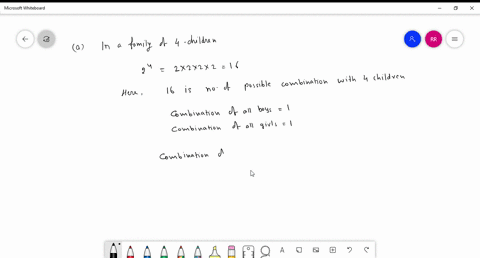 Microsoft Whiteboard
RR
(a) In a family of 4-children
2⁴ = 2×2×2×2 = 16
Here, 16 is no. of possible combination with 4 children
Combination of all boys = 1
Combination of all girls = 1
Combination of